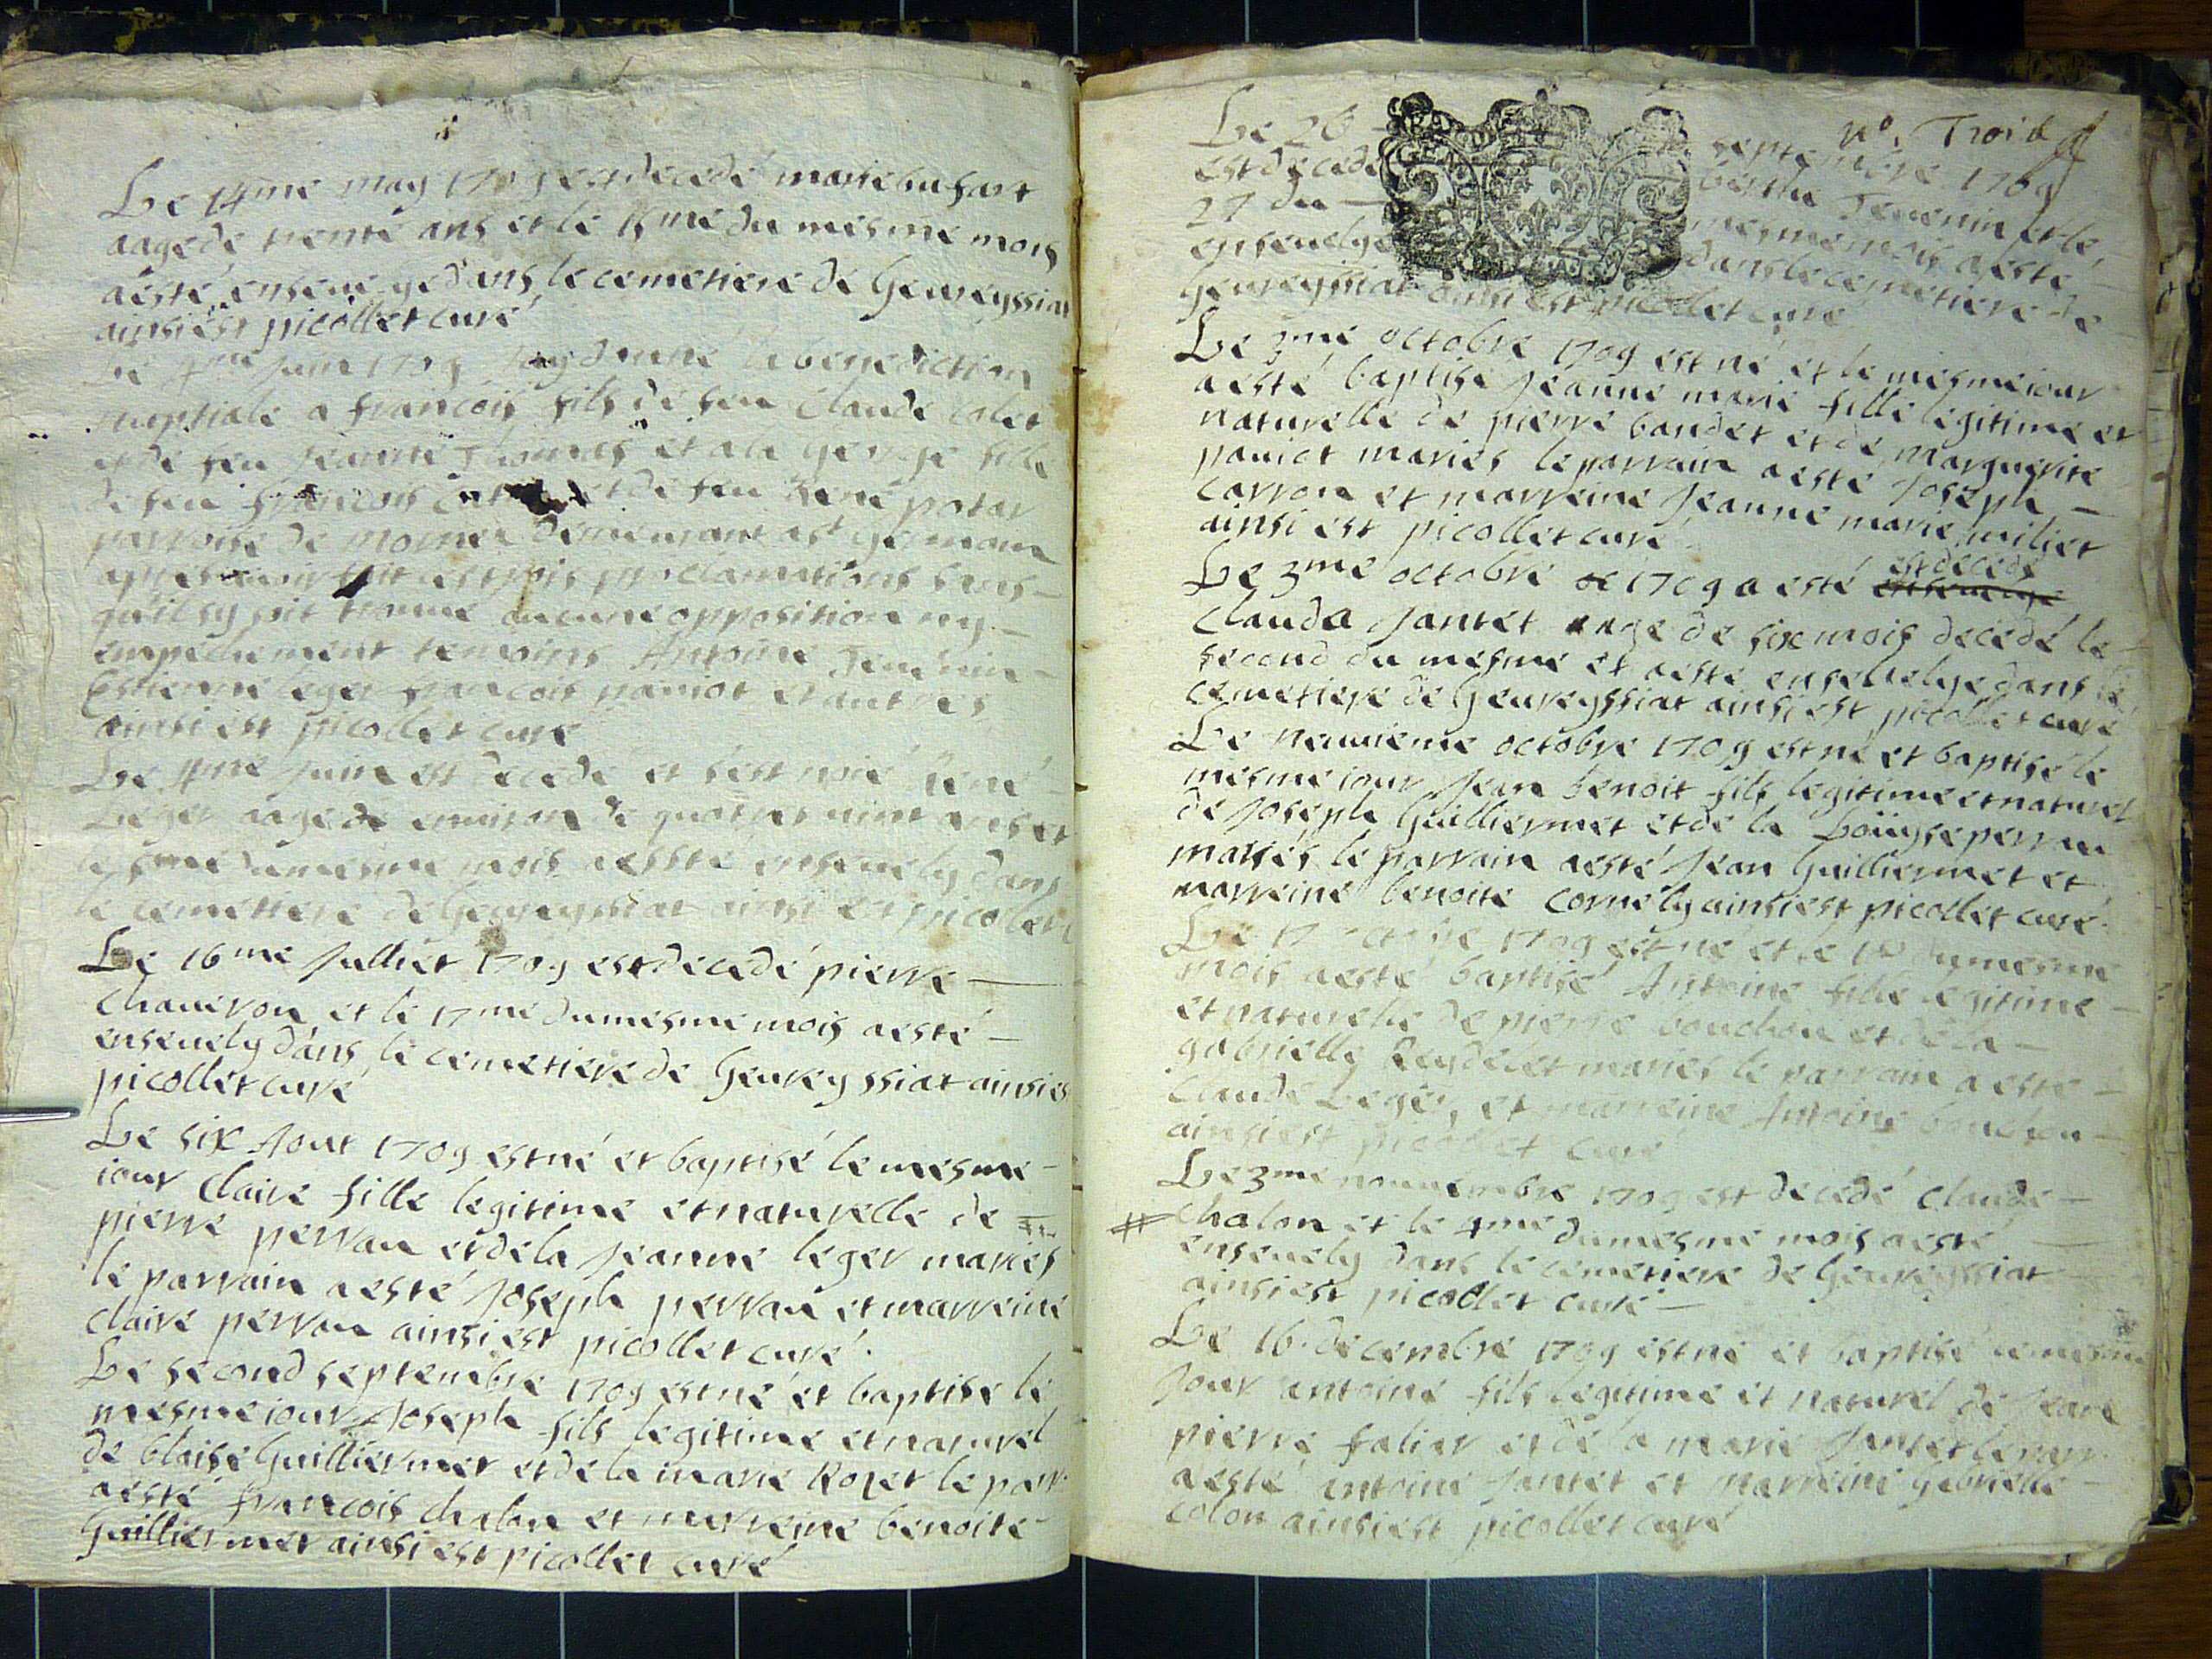 Le 14me may 1709 est decedé marie bussart
aagé de trente ans et le 15me du mesme mois
a esté ensevelye dans le cemetiere de Geureyssiat
ainsi est picollet curé
Le 4me Juin 1709 iay donné la benediction
nuptiale a francois fils de feu Claude Colet
et de feu Jeanne Thomas et a la fille
de feu francois et de feu René potar
parroise de a st germain
apres avoir fait les trois proclamations sans
quil sy soit trouué aucune opposition ny
empechement temoins Antoine Teuenin
Estienne leger francois paniot et autres
ainsi est picollet curé
Le 4me Juin est decedé et sest noié René
Leger aagé de enuiron de quatres uint ans et
le 5me du mesme mois a esté enseuely dans
le cemetiere de Geureyssiat ainsi est picollet
Le 16me Julliet 1709 est decedé pierre
Chaueron et le 17me du mesme mois a esté
enseuely dans le cemetiere de Geureyssiat ainsi es
picollet curé
Le six Aout 1709 est né et baptisé le mesme
iour Claire fille legitime et naturelle de
pierre perran et de la Jeanne leger mariés
le parrain a esté Joseph perran et marreine
Claire perran ainsi est picollet curé.
Le second septembre 1709 est né et baptisé le
mesme iour Joseph fils legitime et naturel
de blaise Guilliermet et de la marie Rozet le parr.
a esté francois chalon et marreine benoite
Guilliermet ainsi est picollet curé
No. Troi
Le 26 septembre 1709
est decedé Teuenin et le
27 du mesme mois a esté
enseuelye dans le cemetiere de
Geureyssiat ainsi est picollet curé
Le 3me octobre 1709 est né et le mesme iour
a esté baptisé Jeanne marie fille legitime et
naturelle de pierre baudet et de marguerite
paniot mariés le parrain a esté Joseph
Carron et marreine Jeanne marie miliet
ainsi est picollet curé.
Le 3me octobre 1709 a esté est decedé
Clauda Jantet aage de six mois decedé le
second du mesme et a esté enseuelye dans le
cemetiere de Geureyssiat ainsi est picollet curé
Le neuuieme octobre 1709 est né et baptisé le
mesme iour Jean benoit fils legitime et naturel
de Joseph Guilliermet et de la Loüyse perran
mariés le parrain a esté Jean Guilliermet et
marreine benoite cornely ainsi est picollet curé.
Le 17 octobre 1709 est né et le 18 du mesme
mois a esté baptisé Antoine fille legitime
et naturelle de pierre bouchon et de la
gabrielle Reydelet mariés le parrain a esté
Claude Leger, et marreine Antoine bouchon
ainsi est picollet curé
Le 3me nouuembre 1709 est decedé Claude
# Chalon et le 4me du mesme mois a esté
enseuely dans le cemetiere de Geureyssiat
ainsi est picollet curé
Le 16. decembre 1709 est né et baptisé le mesme
Jour antoine fils legitime et naturel de Jean
pierre falier et de la marie Jantet le parr.
a esté antoine Jantet et marreine gabrielle
colon ainsi est picollet curé